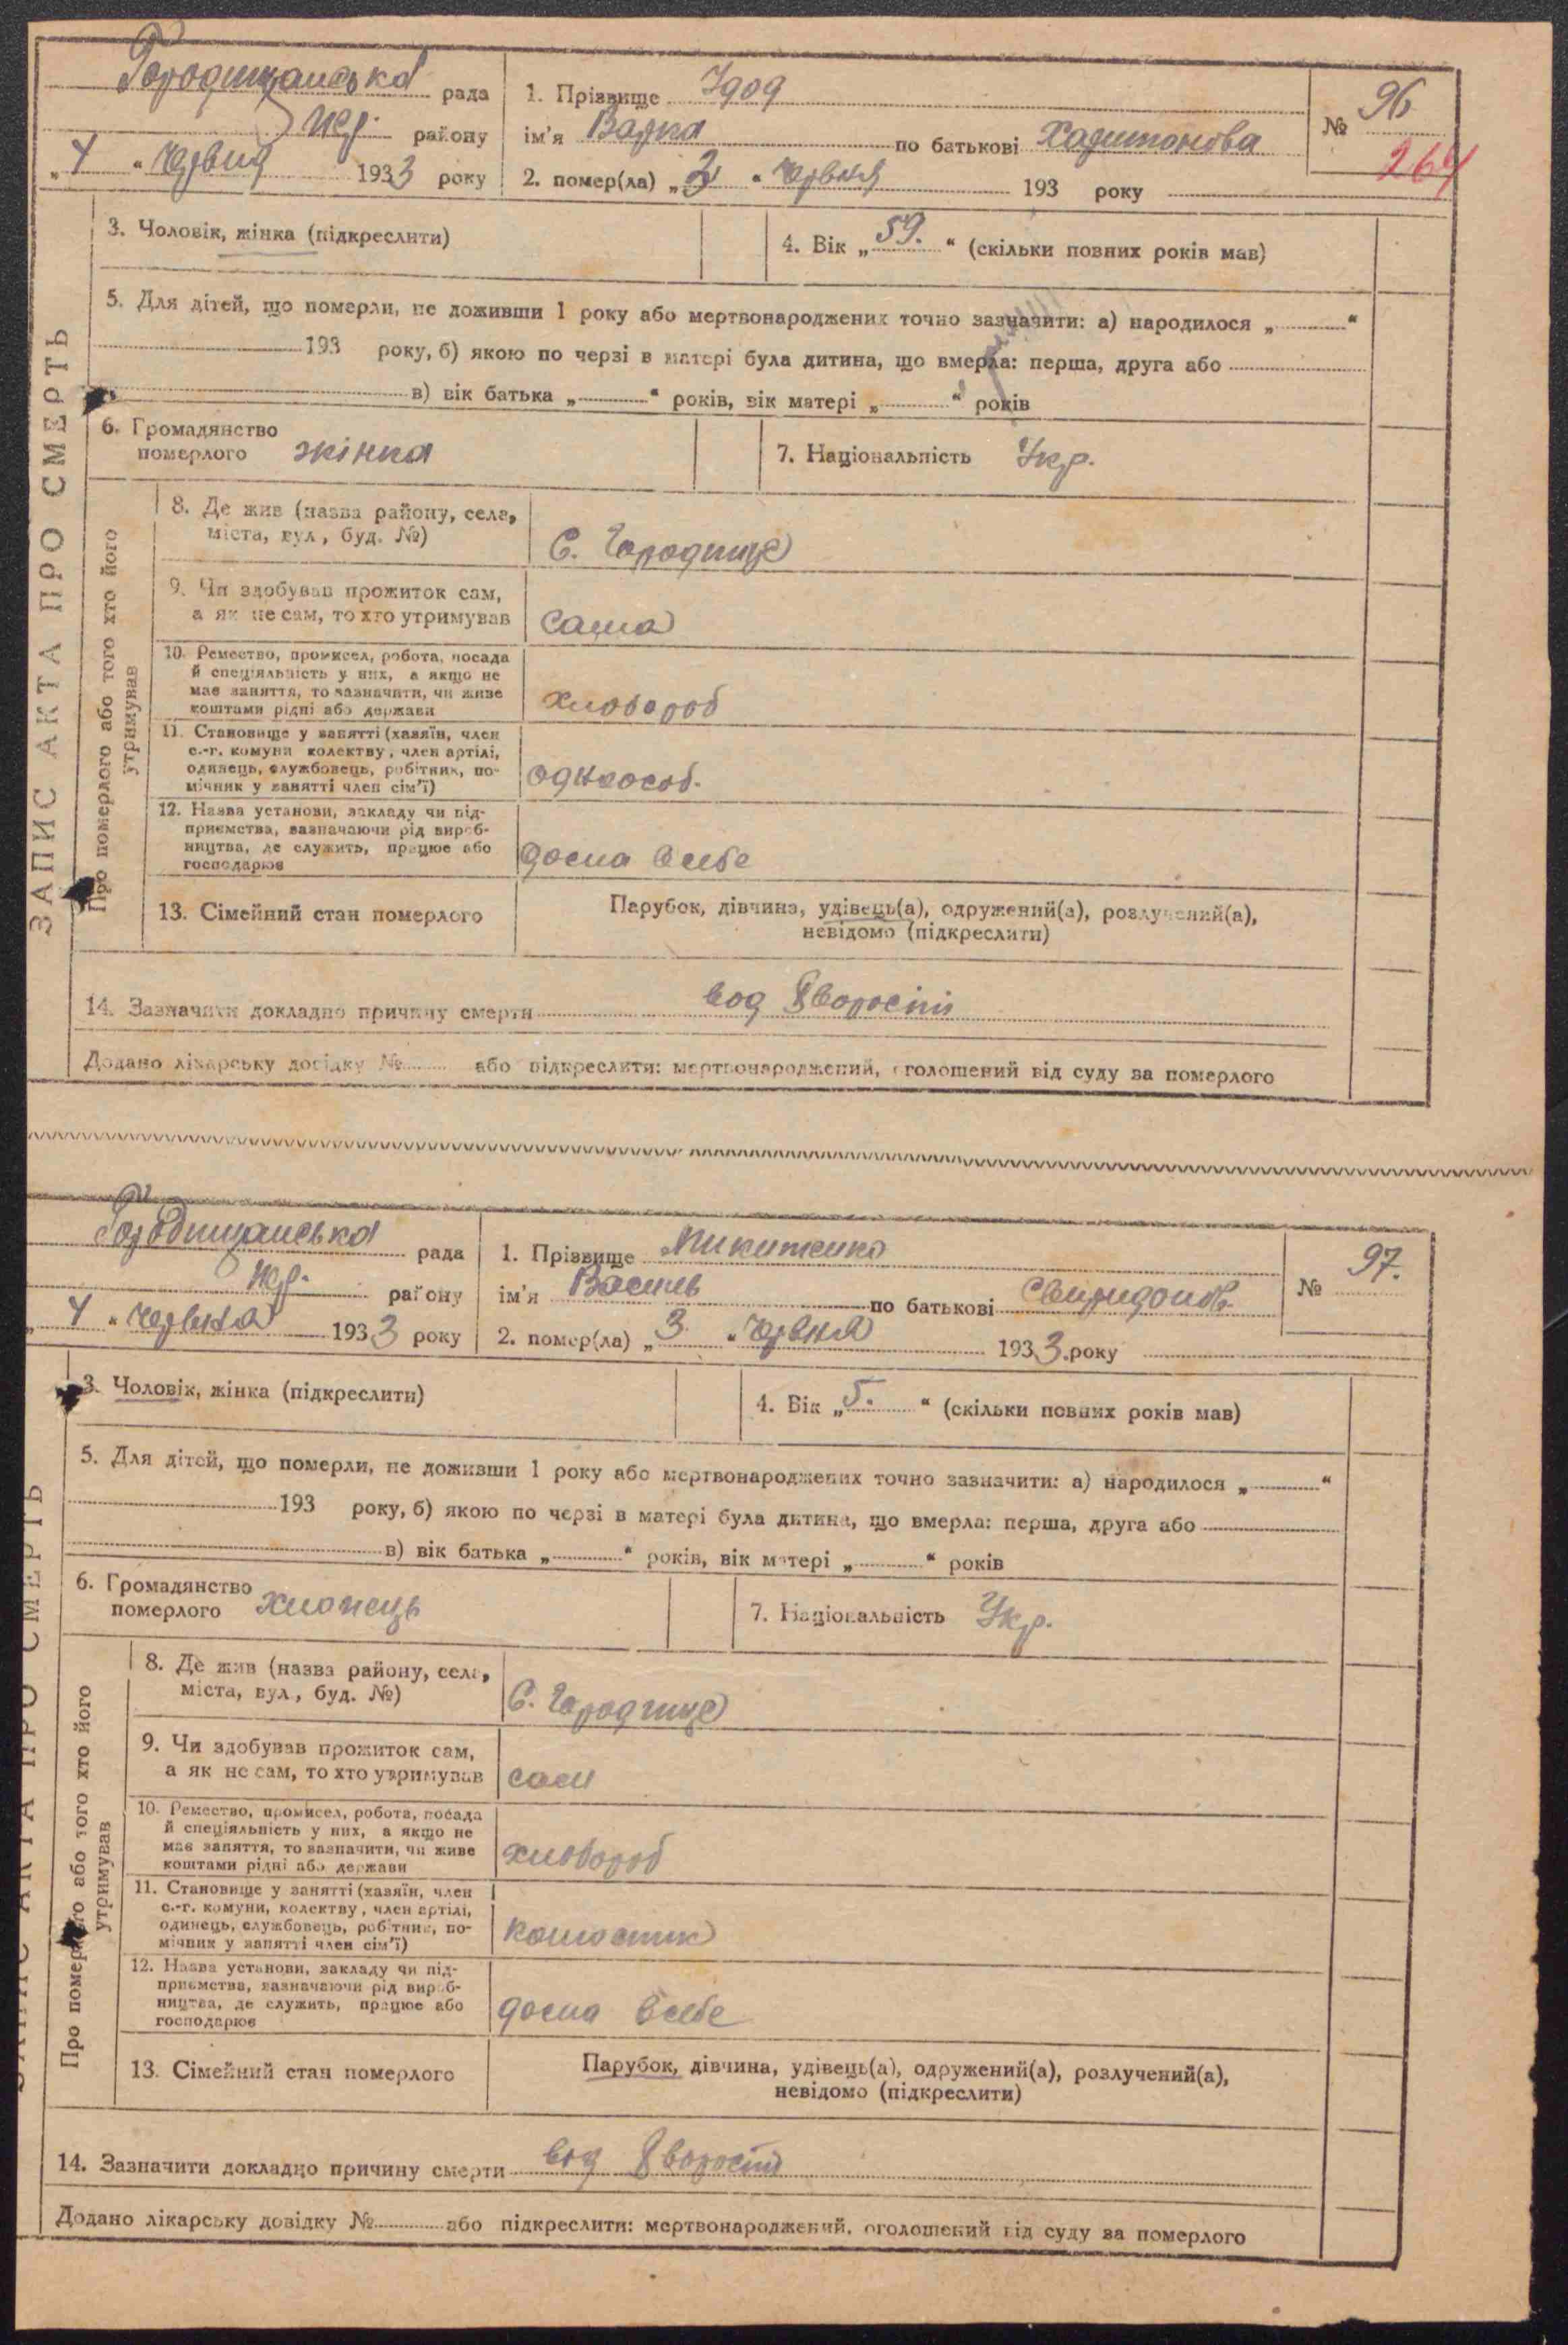 Городищанська рада
району
„ 4 “ Червня 1933 року
1. Прізвище Удод
ім'я Варка по батькові Харитонова
2. помер(ла) „ 3 “ Червня 193 року
№ 96
264
ЗАПИС АКТА ПРО СМЕРТЬ
3. Чоловік, жінка (підкреслити)
4. Вік „ 59. “ (скільки повних років мав)
5. Для дітей, що померли, не доживши 1 року або мертвонароджених точно зазначити: а) народилося „ “
193 року, б) якою по черзі в матері була дитина, що вмерла: перша, друга або
в) вік батька „ “ років, вік матері „ “ років
6. Громадянство
померлого жінка
7. Національність Укр.
Про померлого або того хто його
утримував
8. Де жив (назва району, села,
міста, вул., буд. №)
С. Городище
9. Чи здобував прожиток сам,
а як не сам, то хто утримував
сама
10. Ремество, промисел, робота, посада
й спеціяльність у них, а якщо не
має заняття, то зазначити, чи живе
коштами рідні або держави
хлобороб
11. Становище у занятті (хазяїн, член
с.-г. комуни колектву, член артілі,
одинець, службовець, робітник, по-
мічник у занятті член сім'ї)
одноособ.
12. Назва установи, закладу чи під-
приємства, зазначаючи рід вироб-
ництва, де служить, працює або
господарює
дома в себе
13. Сімейний стан померлого
Парубок, дівчина, удівець(а), одружений(а), розлучений(а),
невідомо (підкреслити)
14. Зазначити докладно причину смерти вод Хворости
Додано лікарську довідку № або підкреслити: мертвонароджений, оголошений від суду за померлого
Городищанська рада
району
„ 4 “ Червня 1933 року
1. Прізвище Микитенко
ім'я Василь по батькові Свиридонов.
2. помер(ла) „ 3. “ Червня 1933. року
№ 97.
ЗАПИС АКТА ПРО СМЕРТЬ
3. Чоловік, жінка (підкреслити)
4. Вік „ 5. “ (скільки повних років мав)
5. Для дітей, що померли, не доживши 1 року або мертвонароджених точно зазначити: а) народилося „ “
193 року, б) якою по черзі в матері була дитина, що вмерла: перша, друга або
в) вік батька „ “ років, вік матері „ “ років
6. Громадянство
померлого хлопець
7. Національність Укр.
Про померлого або того хто його
утримував
8. Де жив (назва району, села,
міста, вул., буд. №)
С. Городище
9. Чи здобував прожиток сам,
а як не сам, то хто утримував
сам
10. Ремество, промисел, робота, посада
й спеціяльність у них, а якщо не
має заняття, то зазначити, чи живе
коштами рідні або держави
хлобороб
11. Становище у занятті (хазяїн, член
с.-г. комуни, колектву, член артілі,
одинець, службовець, робітник, по-
мічник у занятті член сім'ї)
12. Назва установи, закладу чи під-
приємства, зазначаючи рід вироб-
ництва, де служить, працює або
господарює
дома в себе
13. Сімейний стан померлого
Парубок, дівчина, удівець(а), одружений(а), розлучений(а),
невідомо (підкреслити)
14. Зазначити докладно причину смерти вод Хворости
Додано лікарську довідку № або підкреслити: мертвонароджений, оголошений від суду за померлого